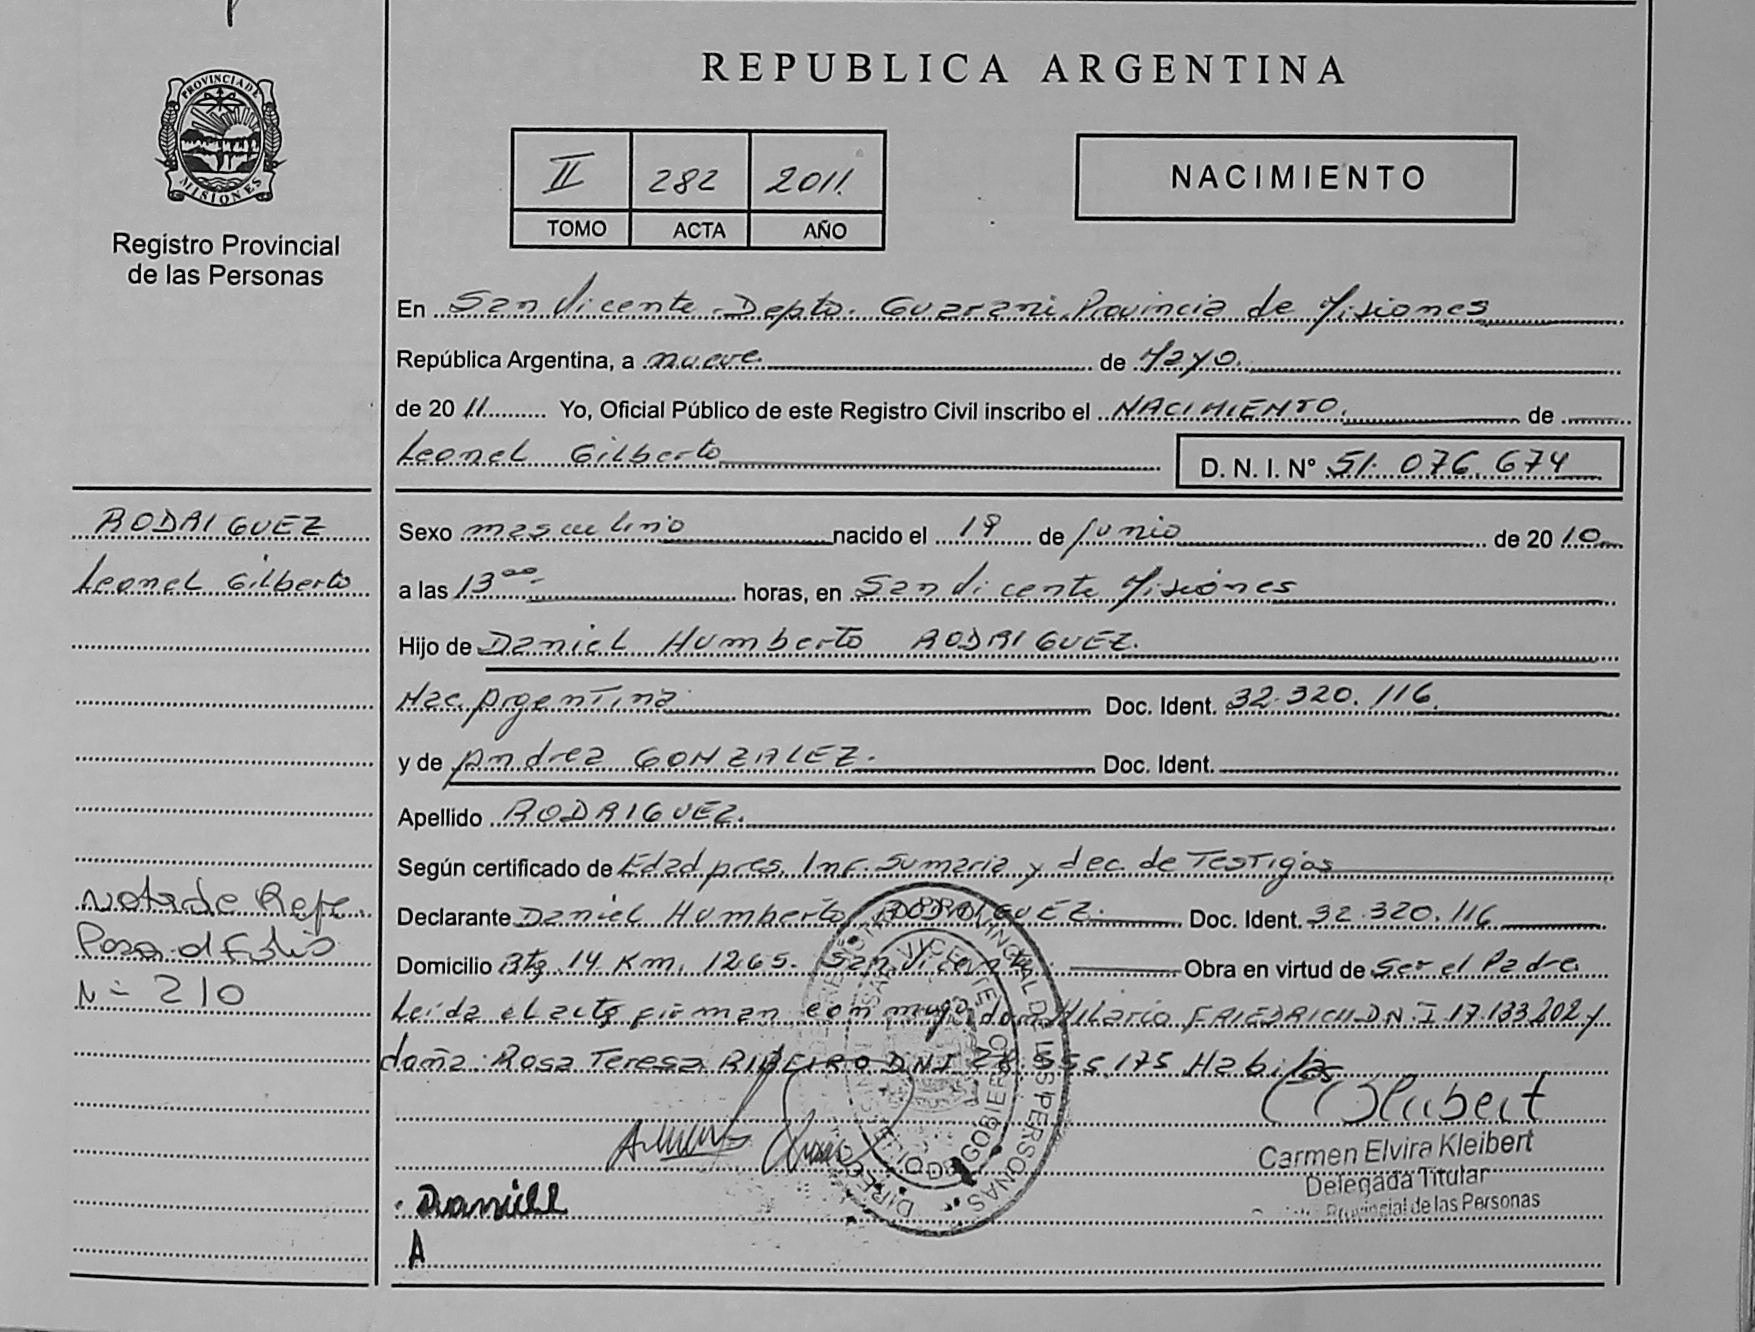 REPUBLICA ARGENTINA
PROVINCIA DE MISIONES
Registro Provincial
de las Personas
II 282 2011
TOMO ACTA AÑO
NACIMIENTO
En San Vicente Depto. Guarani Provincia de Misiones
República Argentina, a nueve de Mayo
de 2011 Yo, Oficial Público de este Registro Civil inscribo el NACIMIENTO. de
Leonel Gilberto D. N. I. Nº 51.076.674
RODRIGUEZ
Leonel Gilberto
Sexo masculino nacido el 19 de Junio de 2010
a las 13 horas, en San Vicente Misiones
Hijo de Daniel Humberto RODRIGUEZ.
Nac. Argentina Doc. Ident. 32.320.116
y de Andrea GONZALEZ. Doc. Ident.
Apellido RODRIGUEZ.
Según certificado de Edad pres. Inf. Sumaria y dec. de Testigos
Declarante Daniel Humberto RODRIGUEZ. Doc. Ident. 32.320.116
Domicilio Rta 14 Km. 1265. San Vicente Obra en virtud de Ser el Padre
Leida el acta firman conmigo don Hilario FRIEDRICH D.N.I 17.133.202 y
doña Rosa Teresa RIBEIRO DNI 555.175 Habiles
Nota de Refe
Pasa al Folio
N= 210
Daniel
A
Carmen Elvira Kleibert
Delegada Titular
Provincial de las Personas